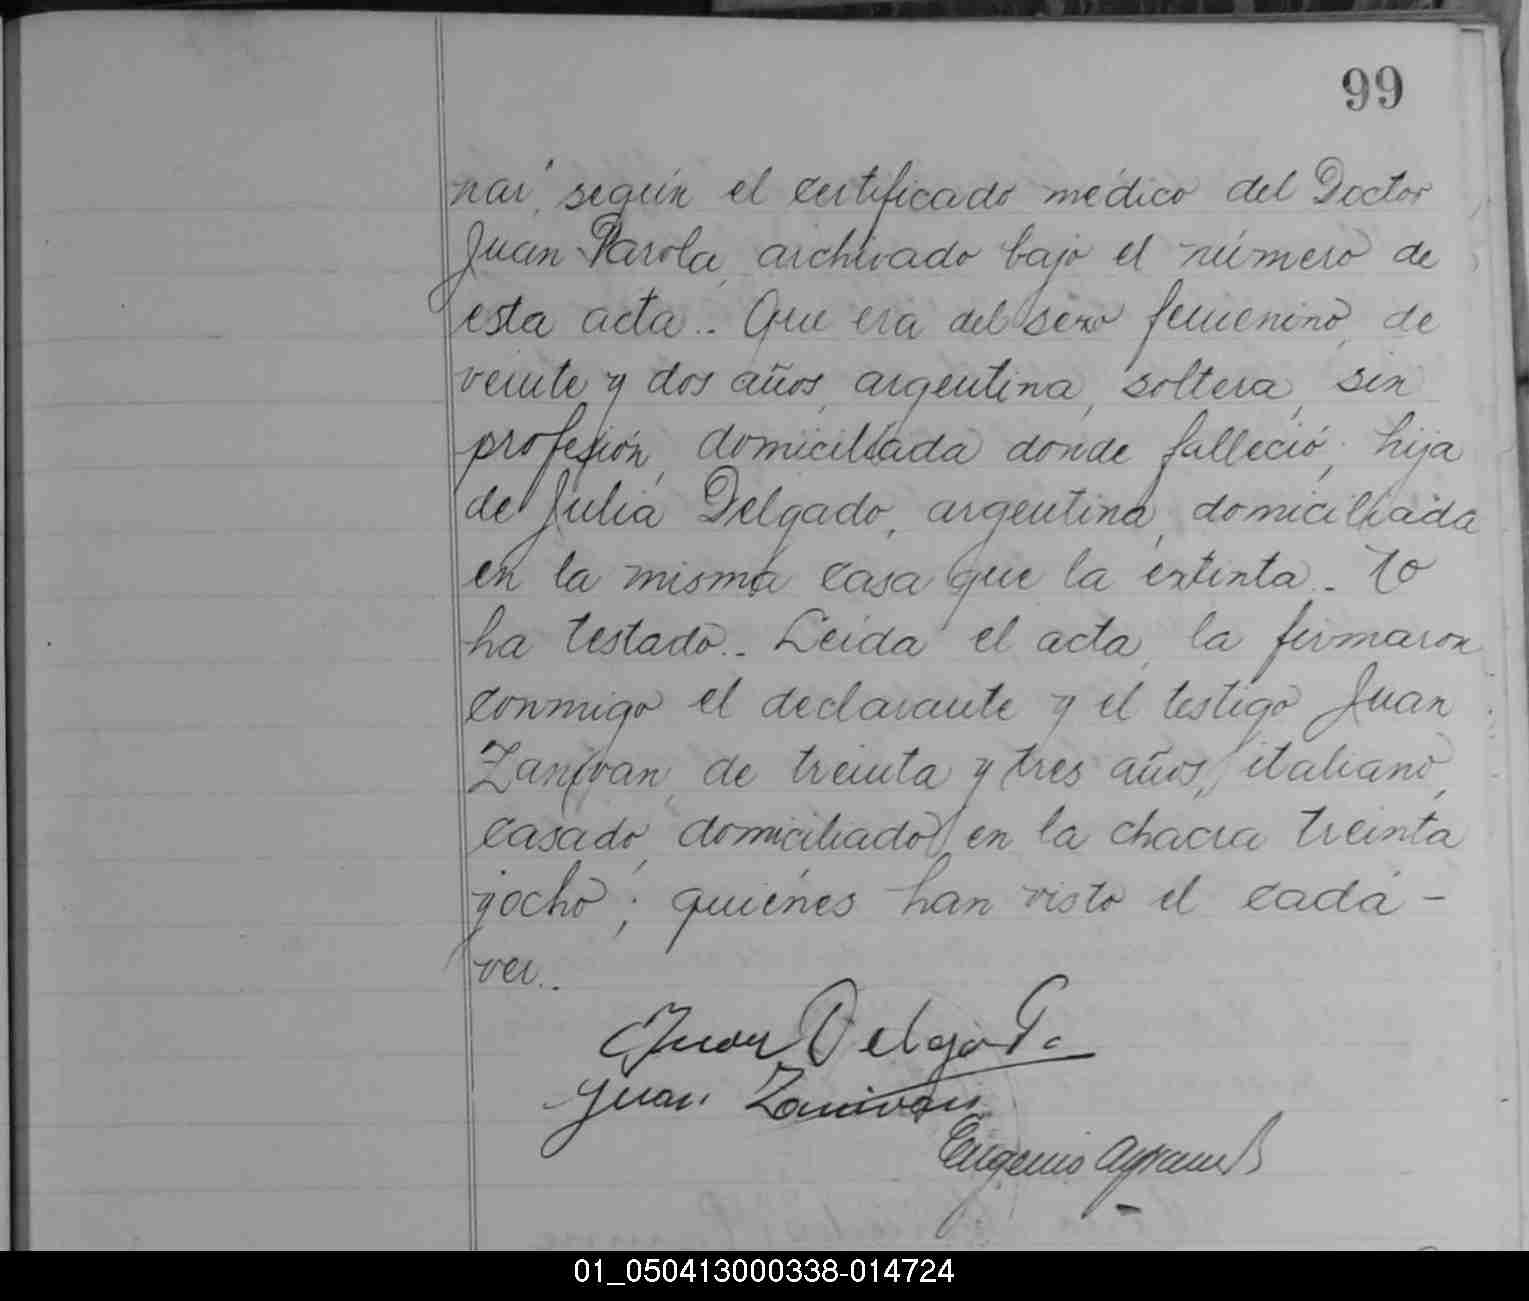 99
nar, según el certificado médico del Doctor
Juan Parola, archivado bajo el número de
esta acta.. Que era del sexo femenino, de
veinte y dos años, argentina, soltera, sin
profesión, domiciliada donde falleció; hija
de Julia Delgado, argentina, domiciliada
en la misma casa que la extinta.. No
ha testado.. Leida el acta, la firmaron
conmigo el declarante y el testigo Juan
Zanivan, de treinta y tres años, italiano,
casado, domiciliado en la chacra treinta
yocho; quiénes han visto el cadá-
ver..
Juan Delgado
Juan Zanivan
Eugenio
01_050413000338-014724